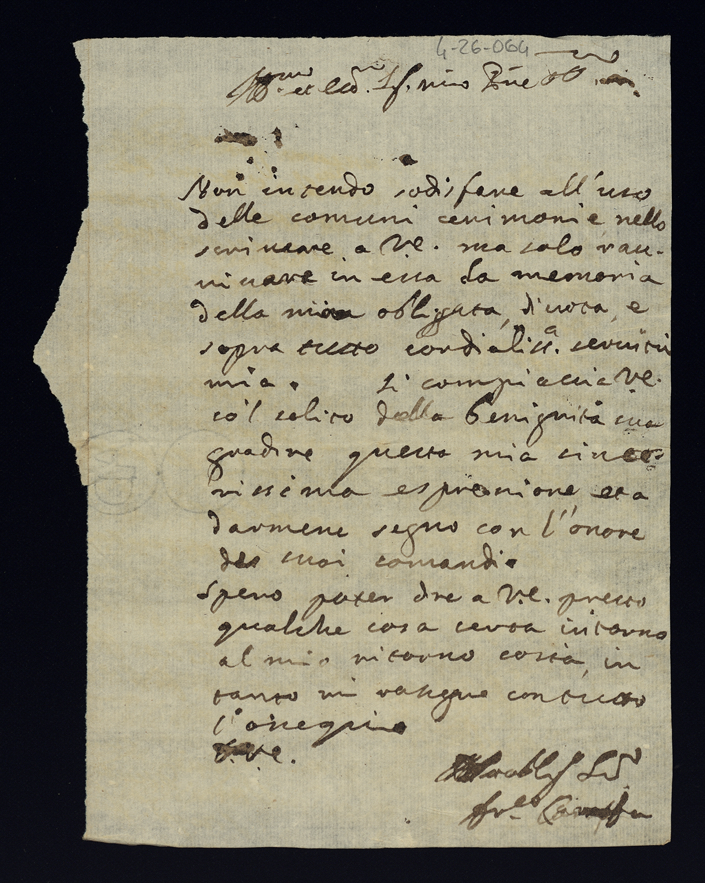 4-26-064
Ill.mo et ecc.mo Sig. mio P.ne
Non intendo sodisfare all'uso
delle comuni cerimonie, nello
scrivere a V.E. ma solo rav-
vivare in essa la memoria
della mia obligata, divota, e
sopra tutto cordialiss.a servitù
mia. Si compiaccia V.E.
co'l solito della benignità sua
gradire questa mia since-
rissima espressione et a
darmene segno con l'onore
dei suoi comandi.
Spero poter dire a V.E. presto
qualche cosa certa intorno
al mio ritorno costà, in
tanto mi rassegno con tutto
l'ossequio
V.E.